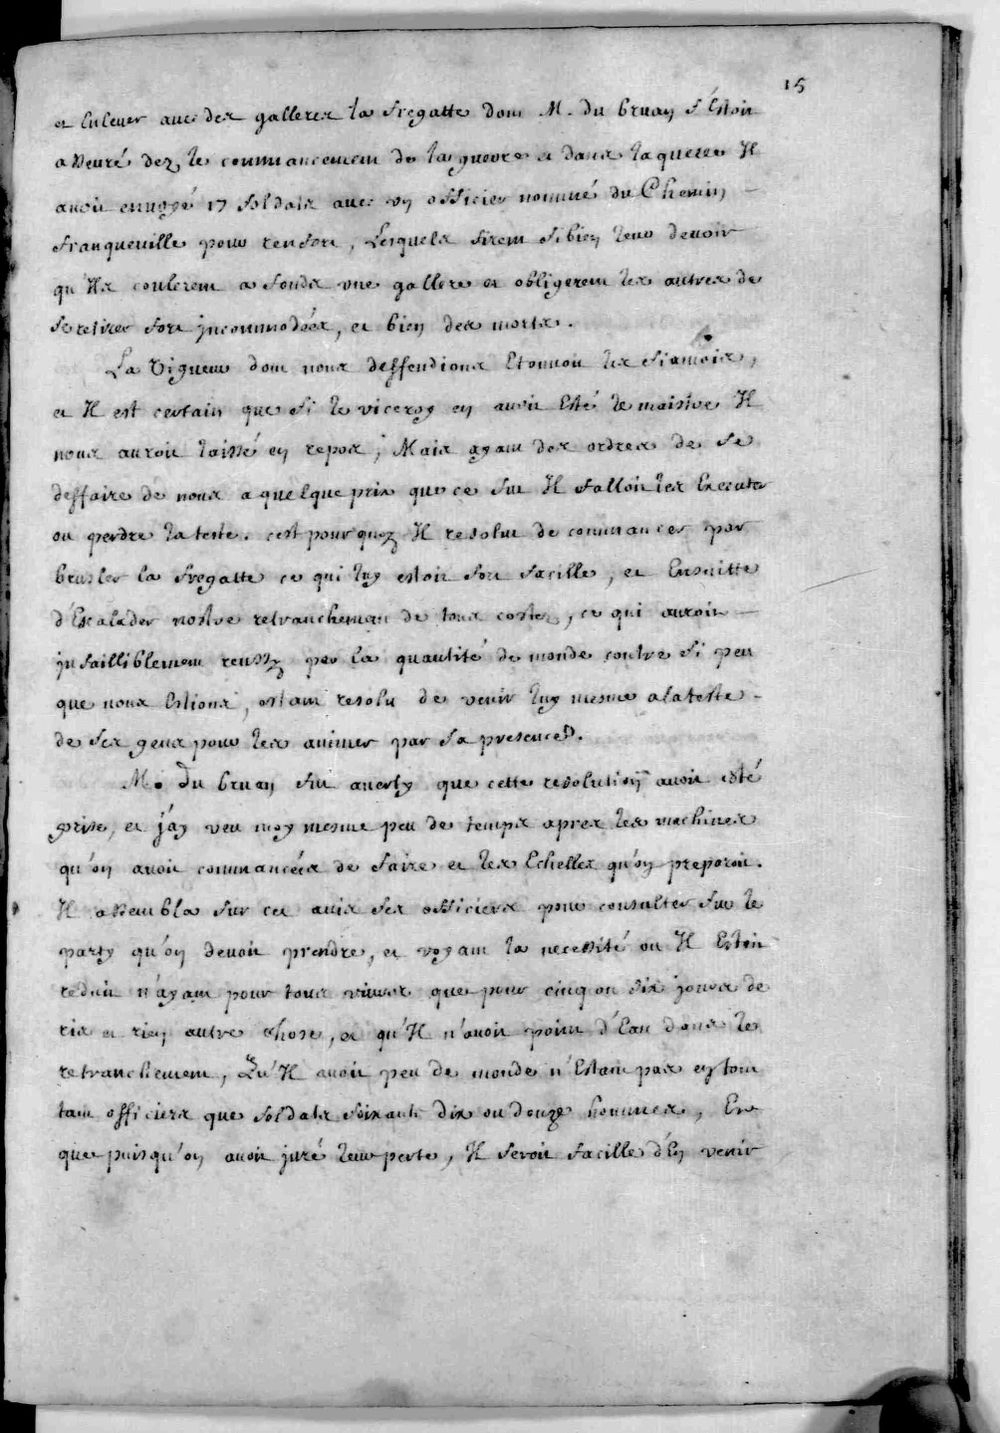 15
et Enlever avec des galleres la fregatte dont M. du bruan s'Estoit
asseuré dez le commancement de la guerre et dans laquelle Il
avoit envoyé 17 soldats avec un officier nommé du Chemin
franqueville pour renfort, Lesquels firent si bien leur devoir
qu'Ils coulerent a fonds une gallere et obligerent les autres de
se retirer fort jncommodées, et bien des morts.
La vigueur dont nous deffendions Etonnoit les siamois,
et Il est certain que si le viceroy en avoit Esté le maistre Il
nous auroit laissé en repos; Mais ayant des ordres de se
deffaire de nous a quelque prix que ce fut Il falloit les Executer
ou perdre la teste. c'est pourquoy Il resolut de commancer par
brusler la fregatte ce qui luy estoit fort facille, et Ensuitte
d'Escalader nostre retranchement de tous costez, ce qui auroit
jnfailliblement reussy par la quantité de monde contre si peu
que nous Estions, estant resolu de venir luy mesme a la teste
de ses gens pour les animer par sa presence.
M. Du bruan fut averty que cette resolution avoit esté
prise, et j'ay veu moy mesme peu de temps apres les machines
qu'on avoit commancées de faire et les Echelles qu'on preparoit.
Il assembla sur cet avis ses officiers pour consulter sur le
party qu'on devoit prendre, et voyant la necessité ou Il Estoit
reduit n'ayant pour tous vivres que pour cinq ou six jours de
ris et rien autre chose, et qu'Il n'avoit point d'Eau dans le
retranchement, Qu'Il avoit peu de monde n'Estant pas en tout
tant officiers que soldats soixante dix ou douze hommes, Et
que puisqu'on avoit juré leur perte, Il seroit facille d'En venir